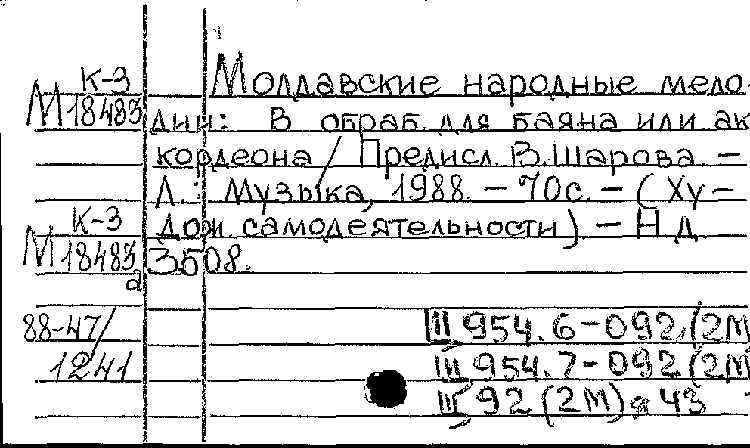 К-3
М 18483
Молдавские народные мело-
дии: В обраб. для баяна или ак-
кордеона / Предисл. В. Шарова. –
Л.: Музыка, 1988. – 70с. – (Ху-
дож. самодеятельность) – Н.д.
3508.
К-3
М 18483
а
88-47/
1241
Ш 954.6-092(2М
Ш 954.7-092(2М
Ш 92(2М)я 43